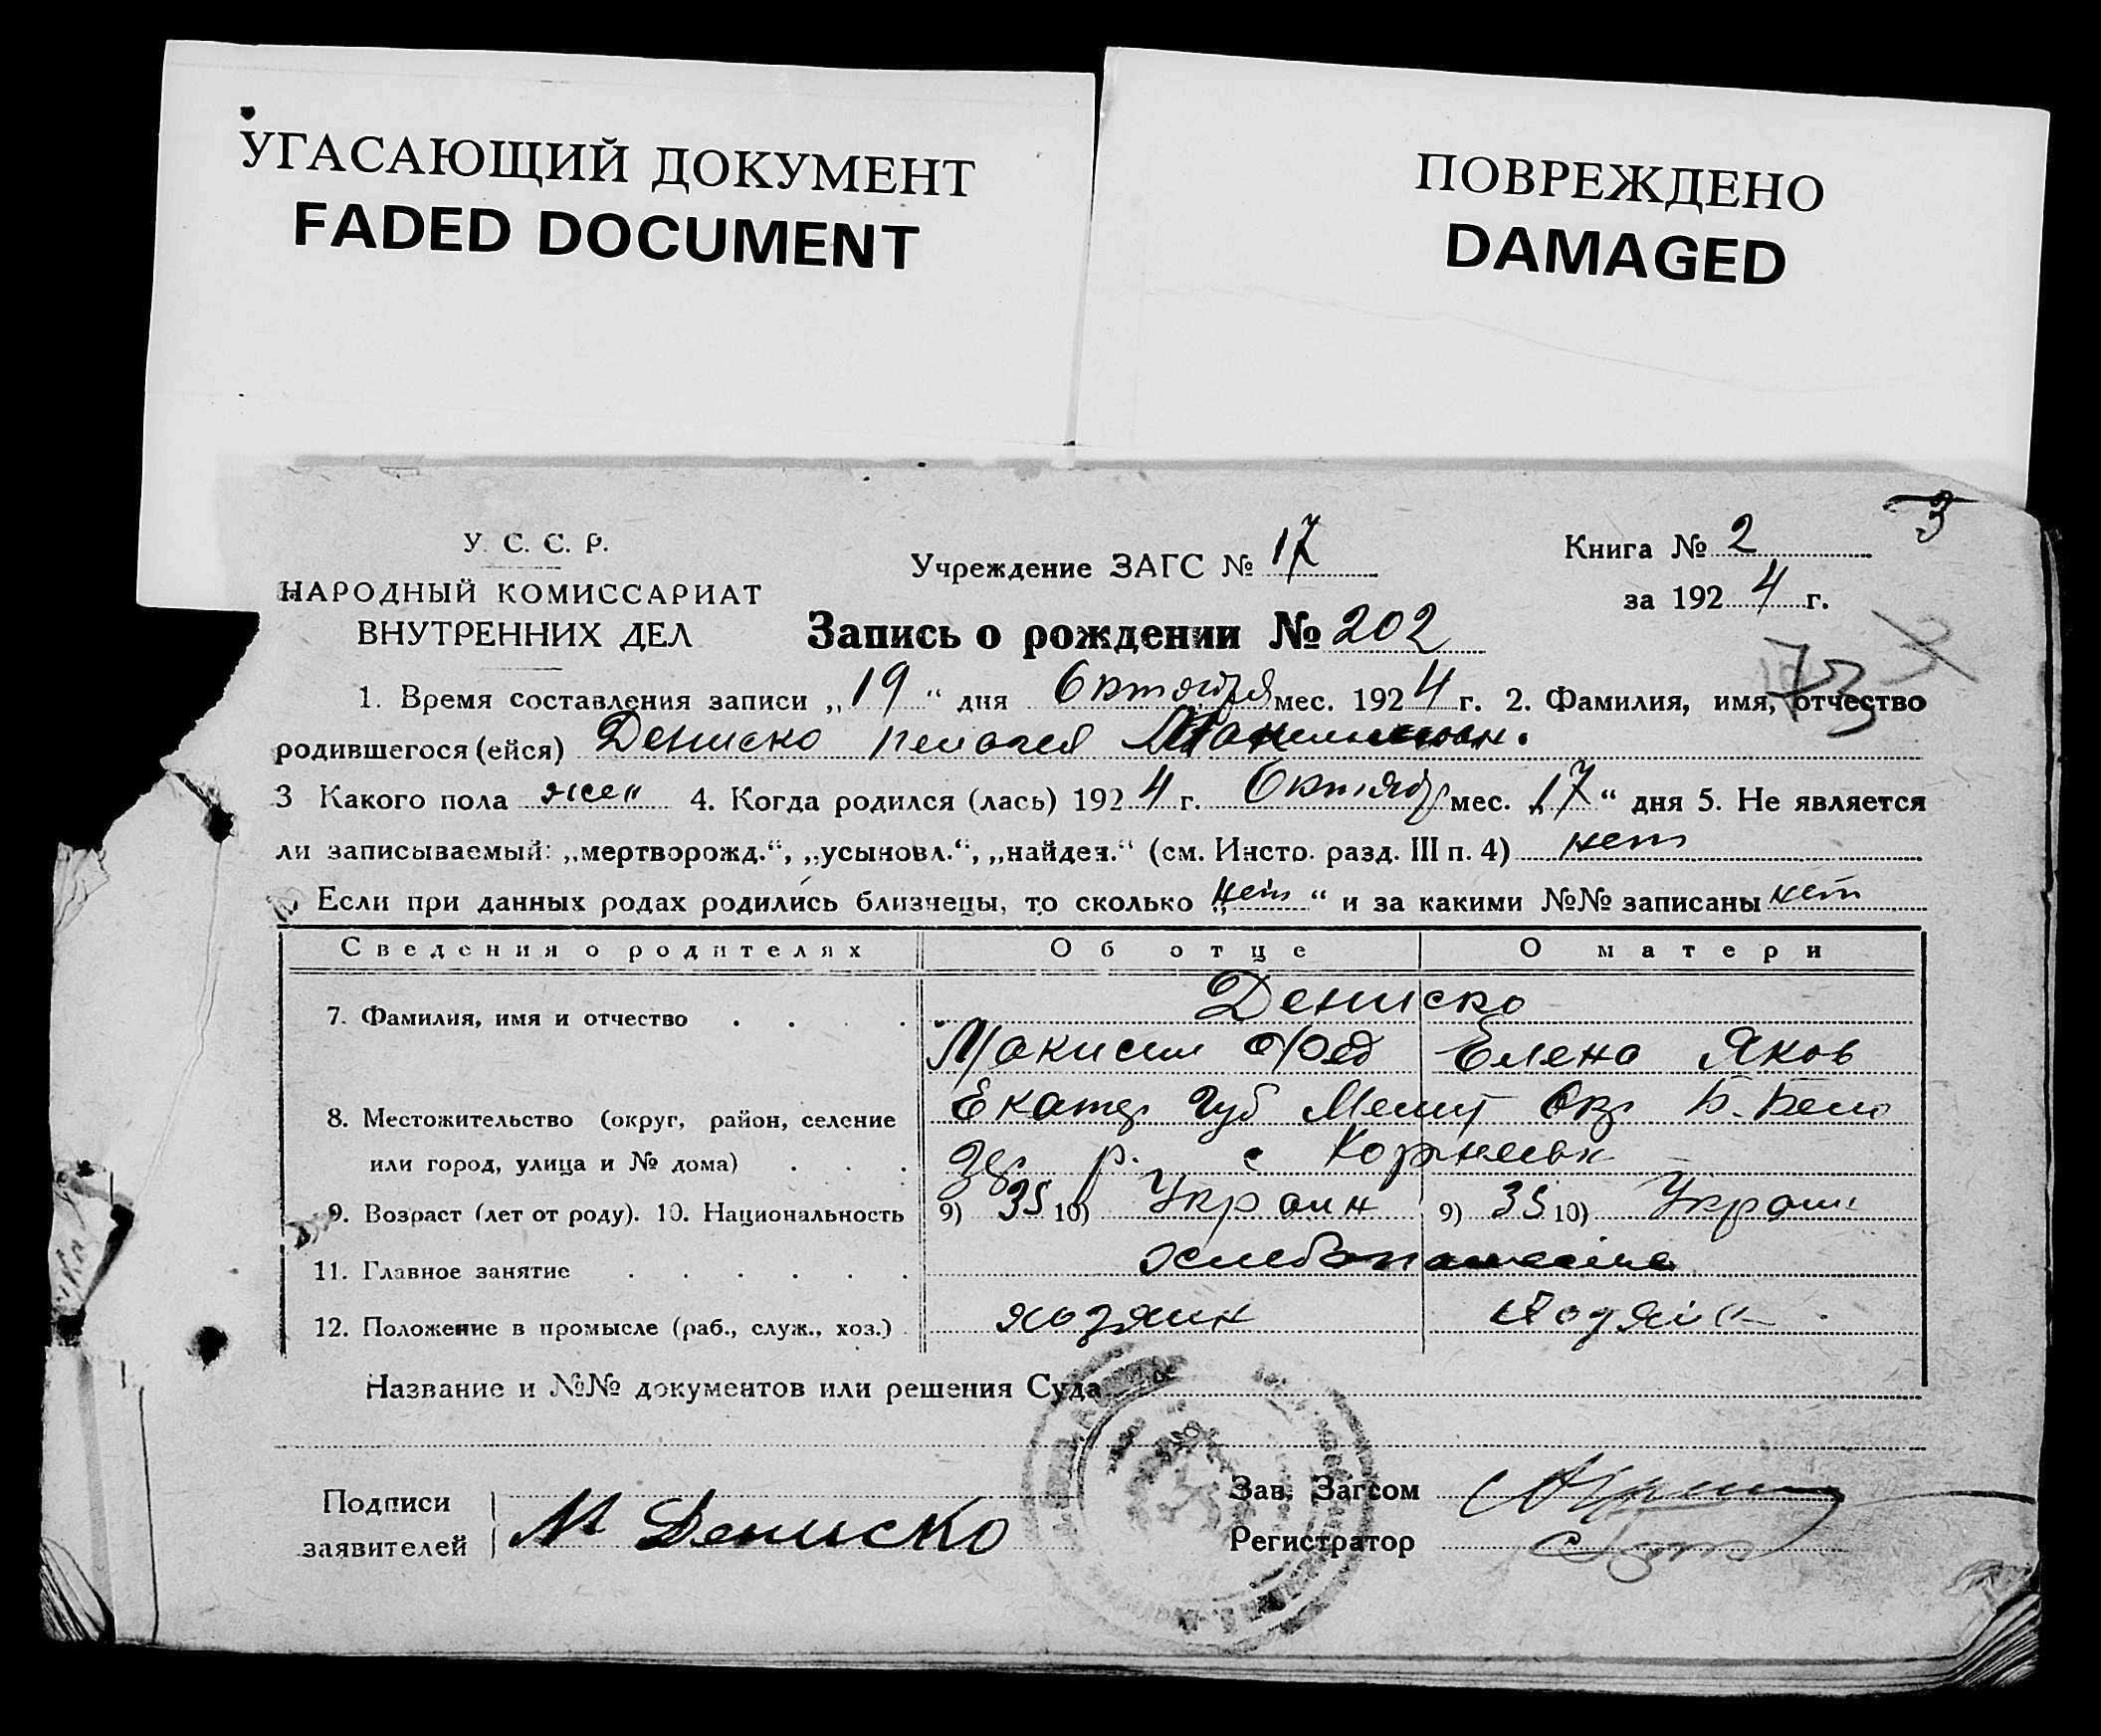 УГАСАЮЩИЙ ДОКУМЕНТ
FADED DOCUMENT
ПОВРЕЖДЕНО
DAMAGED
3
У. С. С. Р.
НАРОДНЫЙ КОМИССАРИАТ
ВНУТРЕННИХ ДЕЛ
Учреждение ЗАГС № 17
Книга № 2
за 1924 г.
Запись о рождении № 202
73
1. Время составления записи „19“ дня Октября мес. 1924 г. 2. Фамилия, имя, отчество
родившегося (ейся) Дениско Пелагея
3 Какого пола жен 4. Когда родился (лась) 1924 г. Октябр мес. „17“ дня 5. Не является
ли записываемый: „мертворожд.“, „усыновл.“, „найден.“ (см. Инстр. разд. III п. 4) нет
Если при данных родах родились близнецы, то сколько „нет“ и за какими №№ записаны нет
Сведения о родителях Об отце О матери
7. Фамилия, имя и отчество Дениско
Максим Фед Елена Яков
8. Местожительство (округ, район, селение Екатер Губ Мелит Окр Б.-Бело
или город, улица и № дома) р. с Корнеевк
9. Возраст (лет от роду). 10. Национальность 9) 35 10) Украин 9) 35 10) Украин
11. Главное занятие хлебопашество
12. Положение в промысле (раб., служ., хоз.) хозяин хозяин
Название и №№ документов или решения Суда
Подписи
заявителей М Дениско
Зав. Загсом
Регистратор